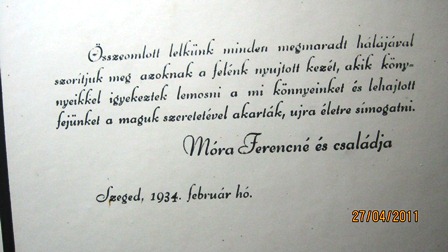 Összeomlott lelkünk minden megmaradt hálájával
szorítjuk meg azoknak a felénk nyujtott kezét, akik köny-
nyeikkel igyekeztek lemosni a mi könnyeinket és lehajtott
fejünket a maguk szeretetével akarták, ujra életre símogatni.
Móra Ferencné és családja
Szeged, 1934. február hó.
27/04/2011